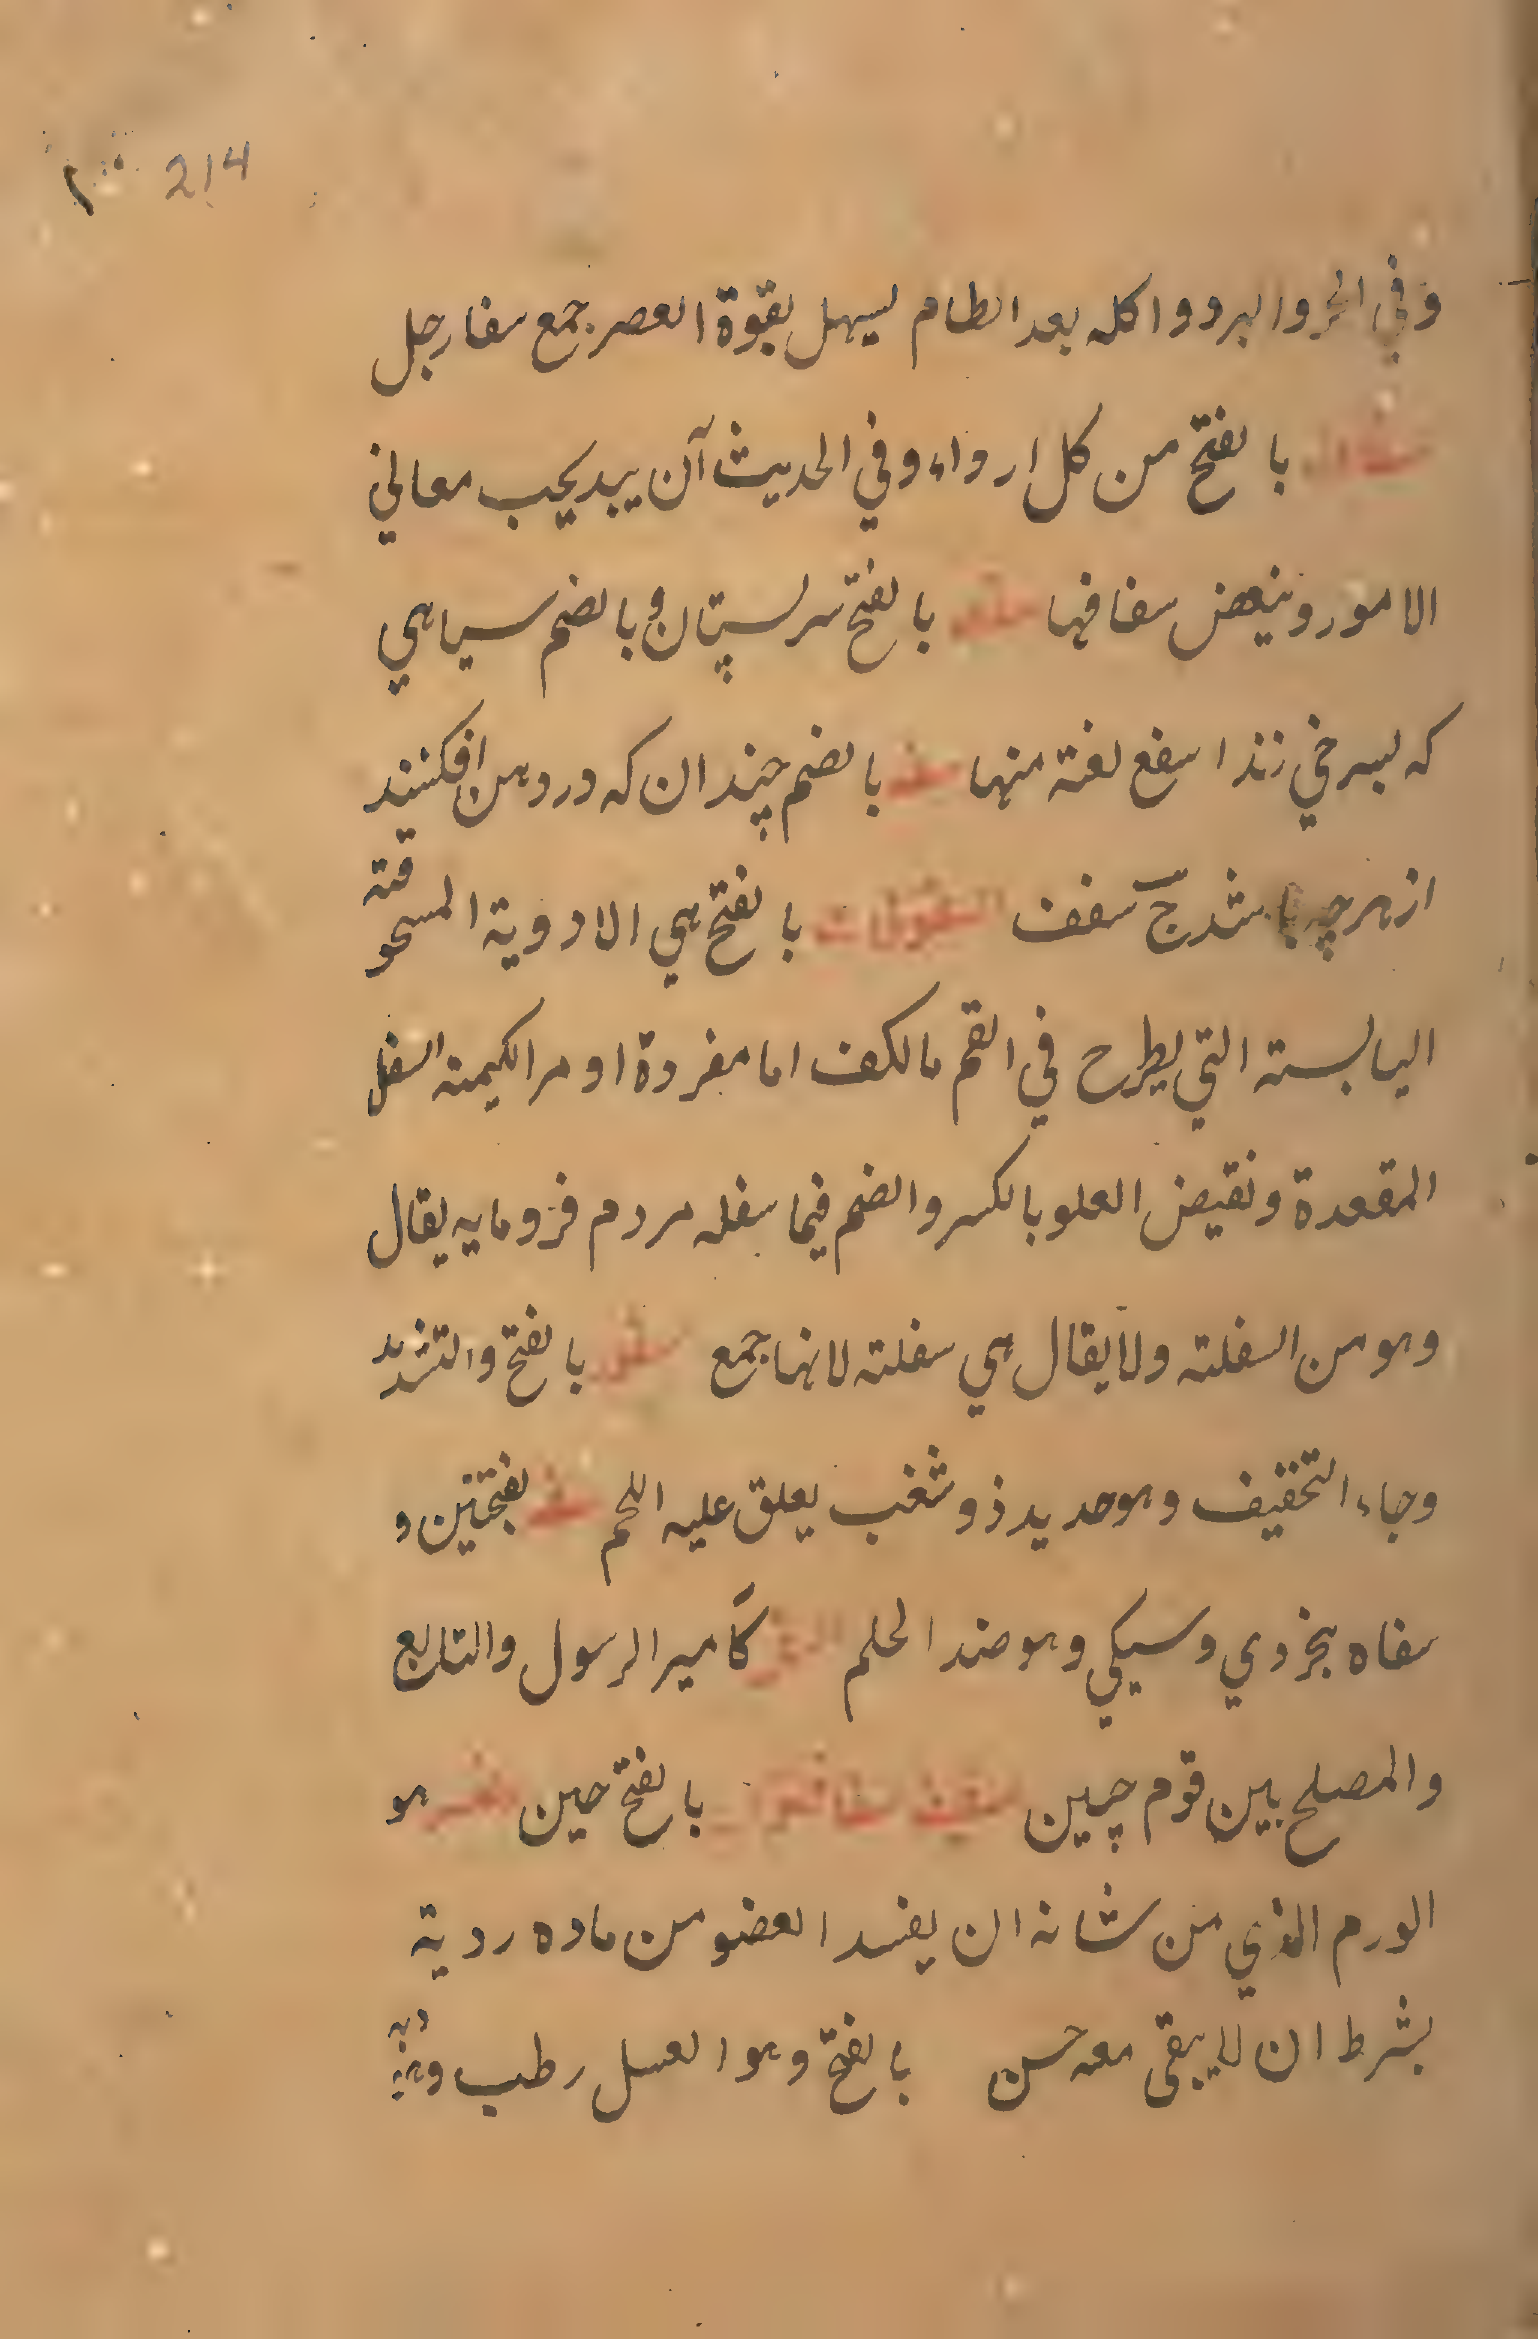 214
وفي الحر والبرد واكله بعد الطام ليسهل بقوة العصر جمع سفارجل
بالفتح من كل ارواء وفي الحديث آن يبد يحب معالي
الامور وينغض سفافها بالفتح سرپستان و بالضم سياهي
كه بسرخي زند اسفع لغته منها بالضم چندان كه در دهن افكنند
از هرچه باشد ج سفف السفوفات بالفتح هي الادوية المسحوقته
اليابسته التي يطرح في الفم مالكف اما مفردة او مراكيمنه السفل
المقعدة ونقيض العلو بالكسر والضم فيما سفله مردم فرومايه يقال
وهو من السفلته ولا يقال هي سفلته لانها جمع سفود بالفتح والتشديد
وجاء التخفيف وهو حديد ذو شغب يعلق عليه اللحم سفه بفتحتين و
سفاه بخردي وسبكي وهو ضد الحلم السفير كأمير الرسول والتابع
والمصلح بين قوم چمين بالفتح حين هو
الورم الذي من شانه ان يفسد العضو من ماده ردية
بشرط ان لا يبقى معه حسن بالفتح وهو العسل رطب